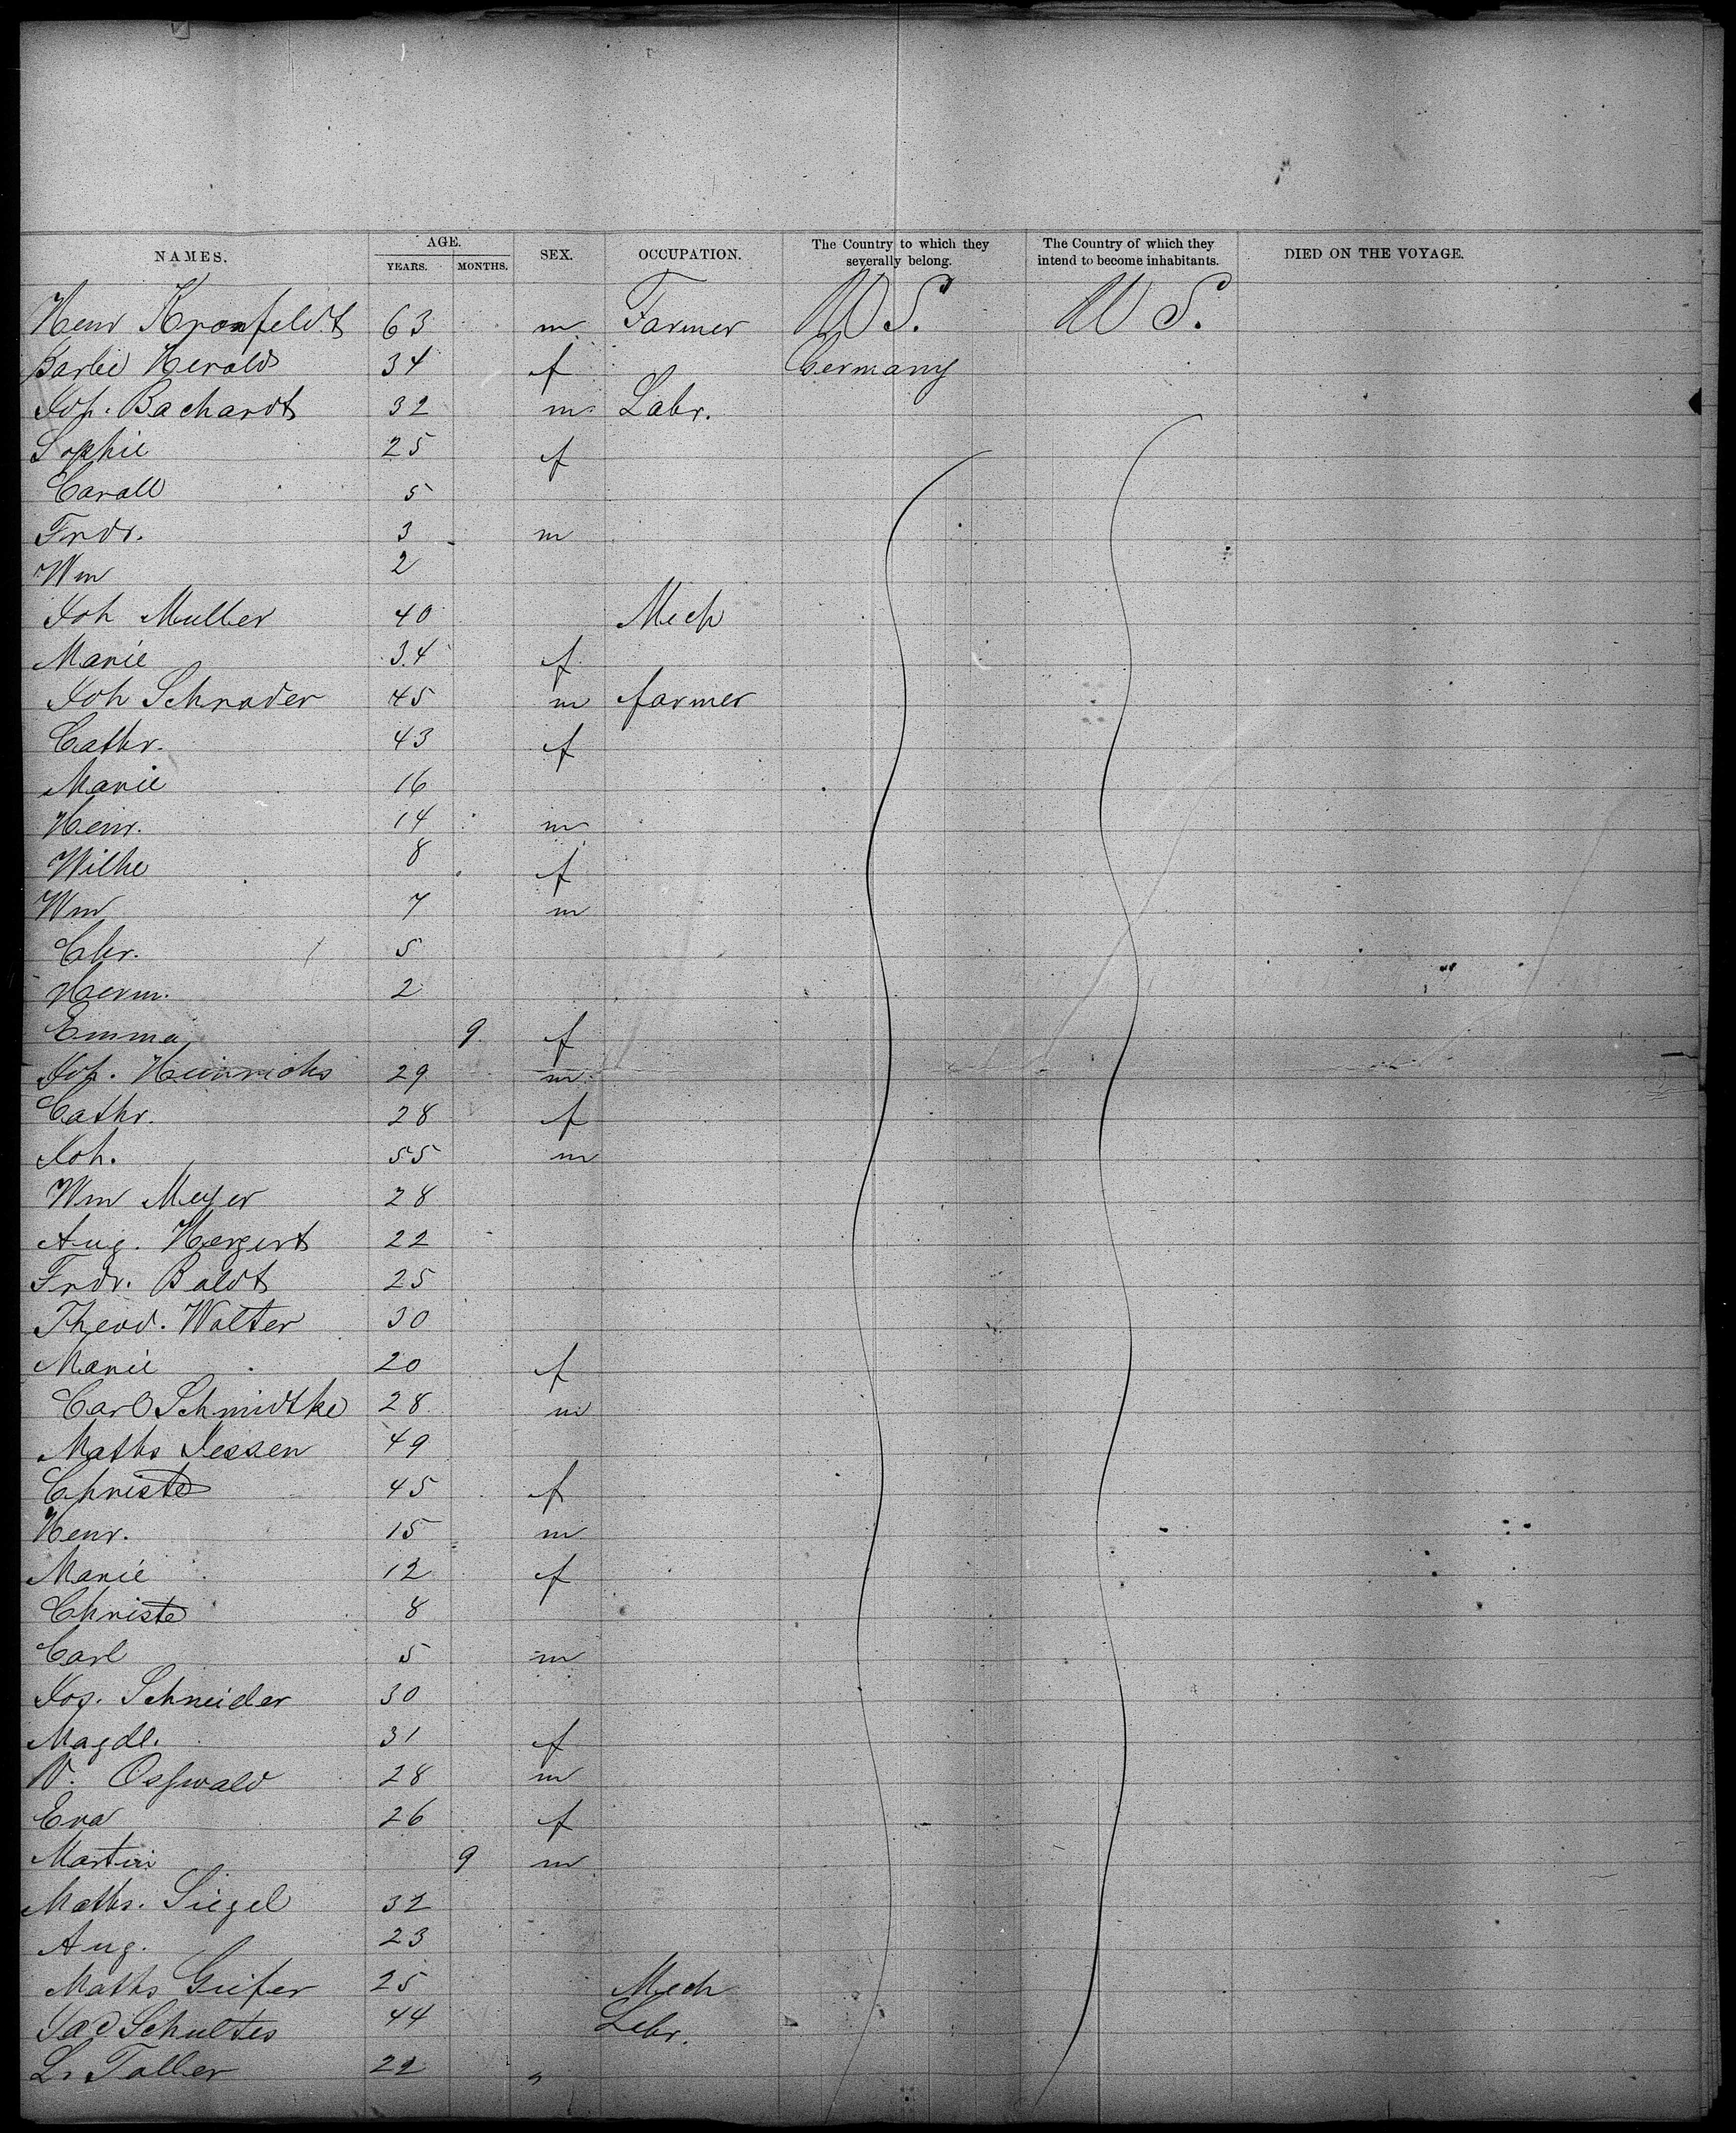 NAMES. AGE. YEARS. MONTHS. SEX. OCCUPATION. The Country to which they severally belong. The Country of which they intend to become inhabitants. DIED ON THE VOYAGE.
Henr Kronfeldt 63 m Farmer US. US.
Barbe Herald 34 f Germany
Joh. Bachardt 32 m Labr.
Sophie 25 f
Caroll 5
Frdr. 3 m
Wm 2
Joh Muller 40 Mech
Marie 34 f
Joh Schrader 45 m farmer
Cathr. 43 f
Marie 16
Heinr. 14 m
Wilhe 8 f
Wm 7 m
Chr. 5
Herm. 2
Emma 9 f
Joh. Heinrichs 29 m
Cathr. 28 f
Joh. 55 m
Wm Meyer 28
Aug. Hergert 22
Frdr. Boldt 25
Theod. Walter 30
Marie 20 f
Carl Schmidtke 28 m
Maths Jessen 49
Christe 45 f
Henr. 15 m
Marie 12 f
Christe 8
Carl 5 m
Jos. Schneider 30
Magdl. 31 f
V. Osswald 28 m
Eva 26 f
Martin 9 m
Maths. Siegel 32
Aug. 23
Maths 25 Mech
Schultes 44 Labr.
Toller 22